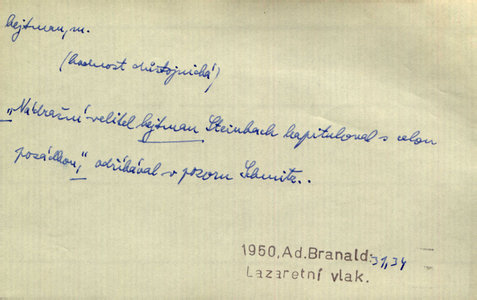 hejtman, m.
(hodnost důstojnická)
„Nádražní velitel hejtman Steinbach kapituloval s celou
posádkou," odříkával v pozoru Schmitz..
1950, Ad. Branald: 31, 34
Lazaretní vlak.